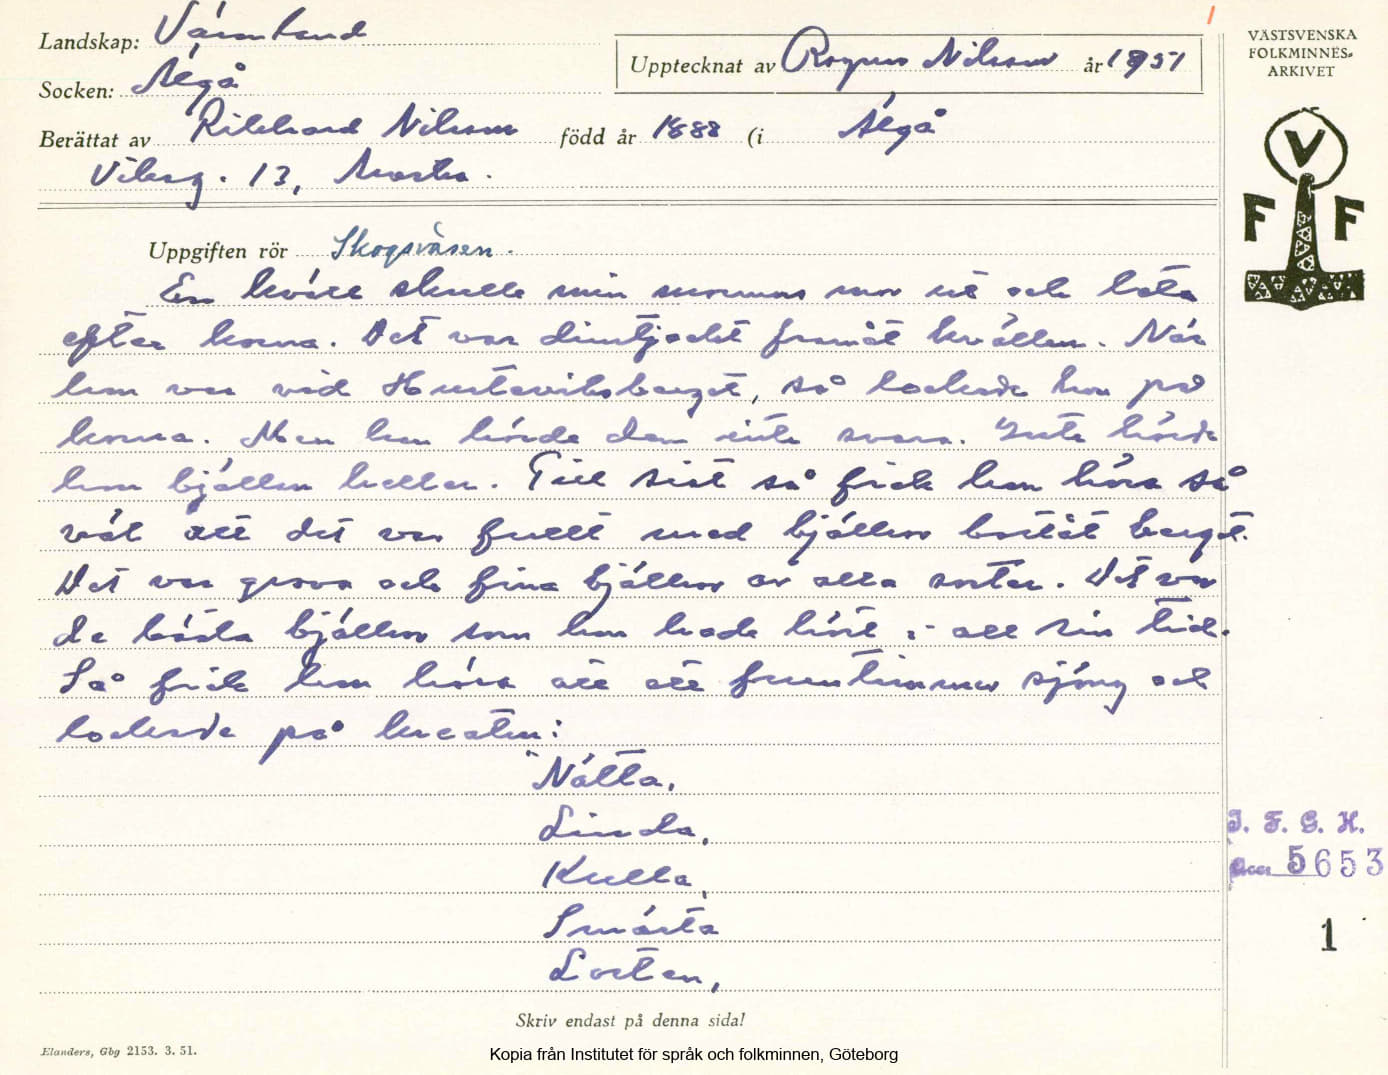 Landskap: Värmland
Upptecknat av Ragnar Nilsson år 1951
VÄSTSVENSKA
FOLKMINNES-
ARKIVET
V
F F
Socken: Älgå
Berättat av Rikhard Nilsson född år 1888 (i Älgå
13, Arvika.
Uppgiften rör Skogsväsen.
En kväll skulle min mormors mor ut och leta
efter korna. Det var dimtjockt framåt kvällen. När
hon var vid så lockade hon på
korna. Men hon hörde dem inte svara. Inte hörde
hon bjällan heller. Till sist så fick hon höra så
väl att det var fullt med bjällror bortåt berget.
Det var grova och fina bjällror av alla sorter. Det var
de bästa bjällror som hon hade hört i all sin tid.
Så fick hon höra att ett fruntimmer sjöng och
lockade på kreaten:
"Nätta,
Linda,
Kulla,
Smärta
Lotten,
I. F. G. H.
Acc 5653
1
Skriv endast på denna sida!
Elanders, Gbg 2153. 3. 51.
Kopia från Institutet för språk och folkminnen, Göteborg